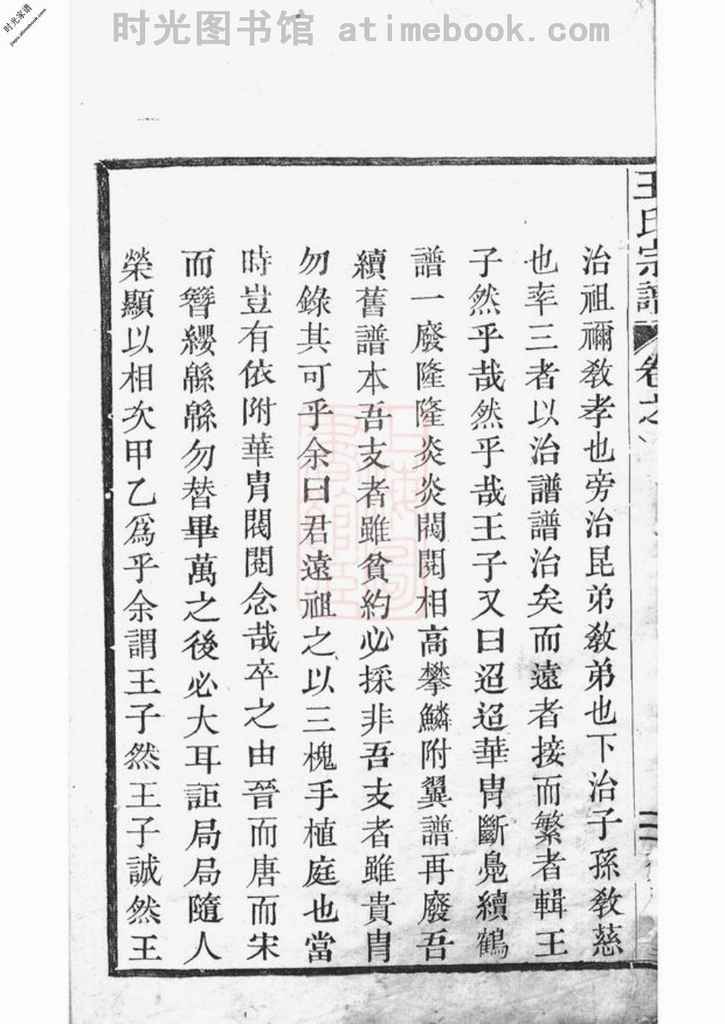 时光图书馆 atimebook.com
时光家谱
王氏宗譜
卷之
治祖禰教孝也旁治昆弟教弟也下治子孫教慈
也率三者以治譜譜治矣而遠者接而繁者輯王
子然乎哉然乎哉王子又曰迢迢華胄斷鳧續鶴
譜一廢隆隆炎炎閥閱相高攀鱗附翼譜再廢吾
續舊譜本吾支者雖貧約必採非吾支者雖貴胄
勿錄其可乎余曰君遠祖之以三槐手植庭也當
時豈有依附華胄閥閱念哉卒之由晉而唐而宋
而簪纓緜緜勿替畢萬之後必大耳詎局局隨人
榮顯以相次甲乙爲乎余謂王子然王子誠然王